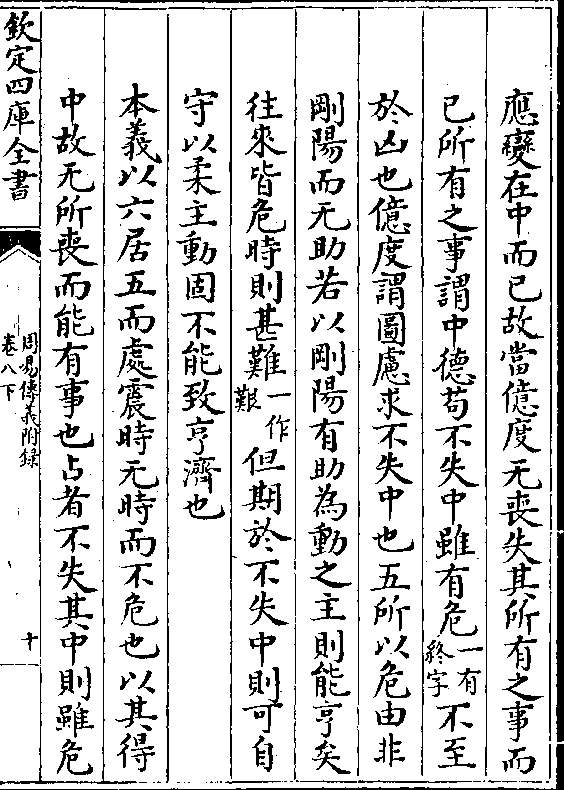 應變在中而已故當億度无喪失其所有之事而
已所有之事謂中德苟不失中雖有危一有終字不至
於凶也億度謂圖慮求不失中也五所以危由非
剛陽而无助若以剛陽有助為動之主則能亨矣
往來皆危時則甚難一作艱但期於不失中則可自
守以柔主動固不能致亨濟也
本義以六居五而處震時无時而不危也以其得
中故无所喪而能有事也占者不失其中則雖危
欽定四庫全書
周易傳義附錄
卷八下
十